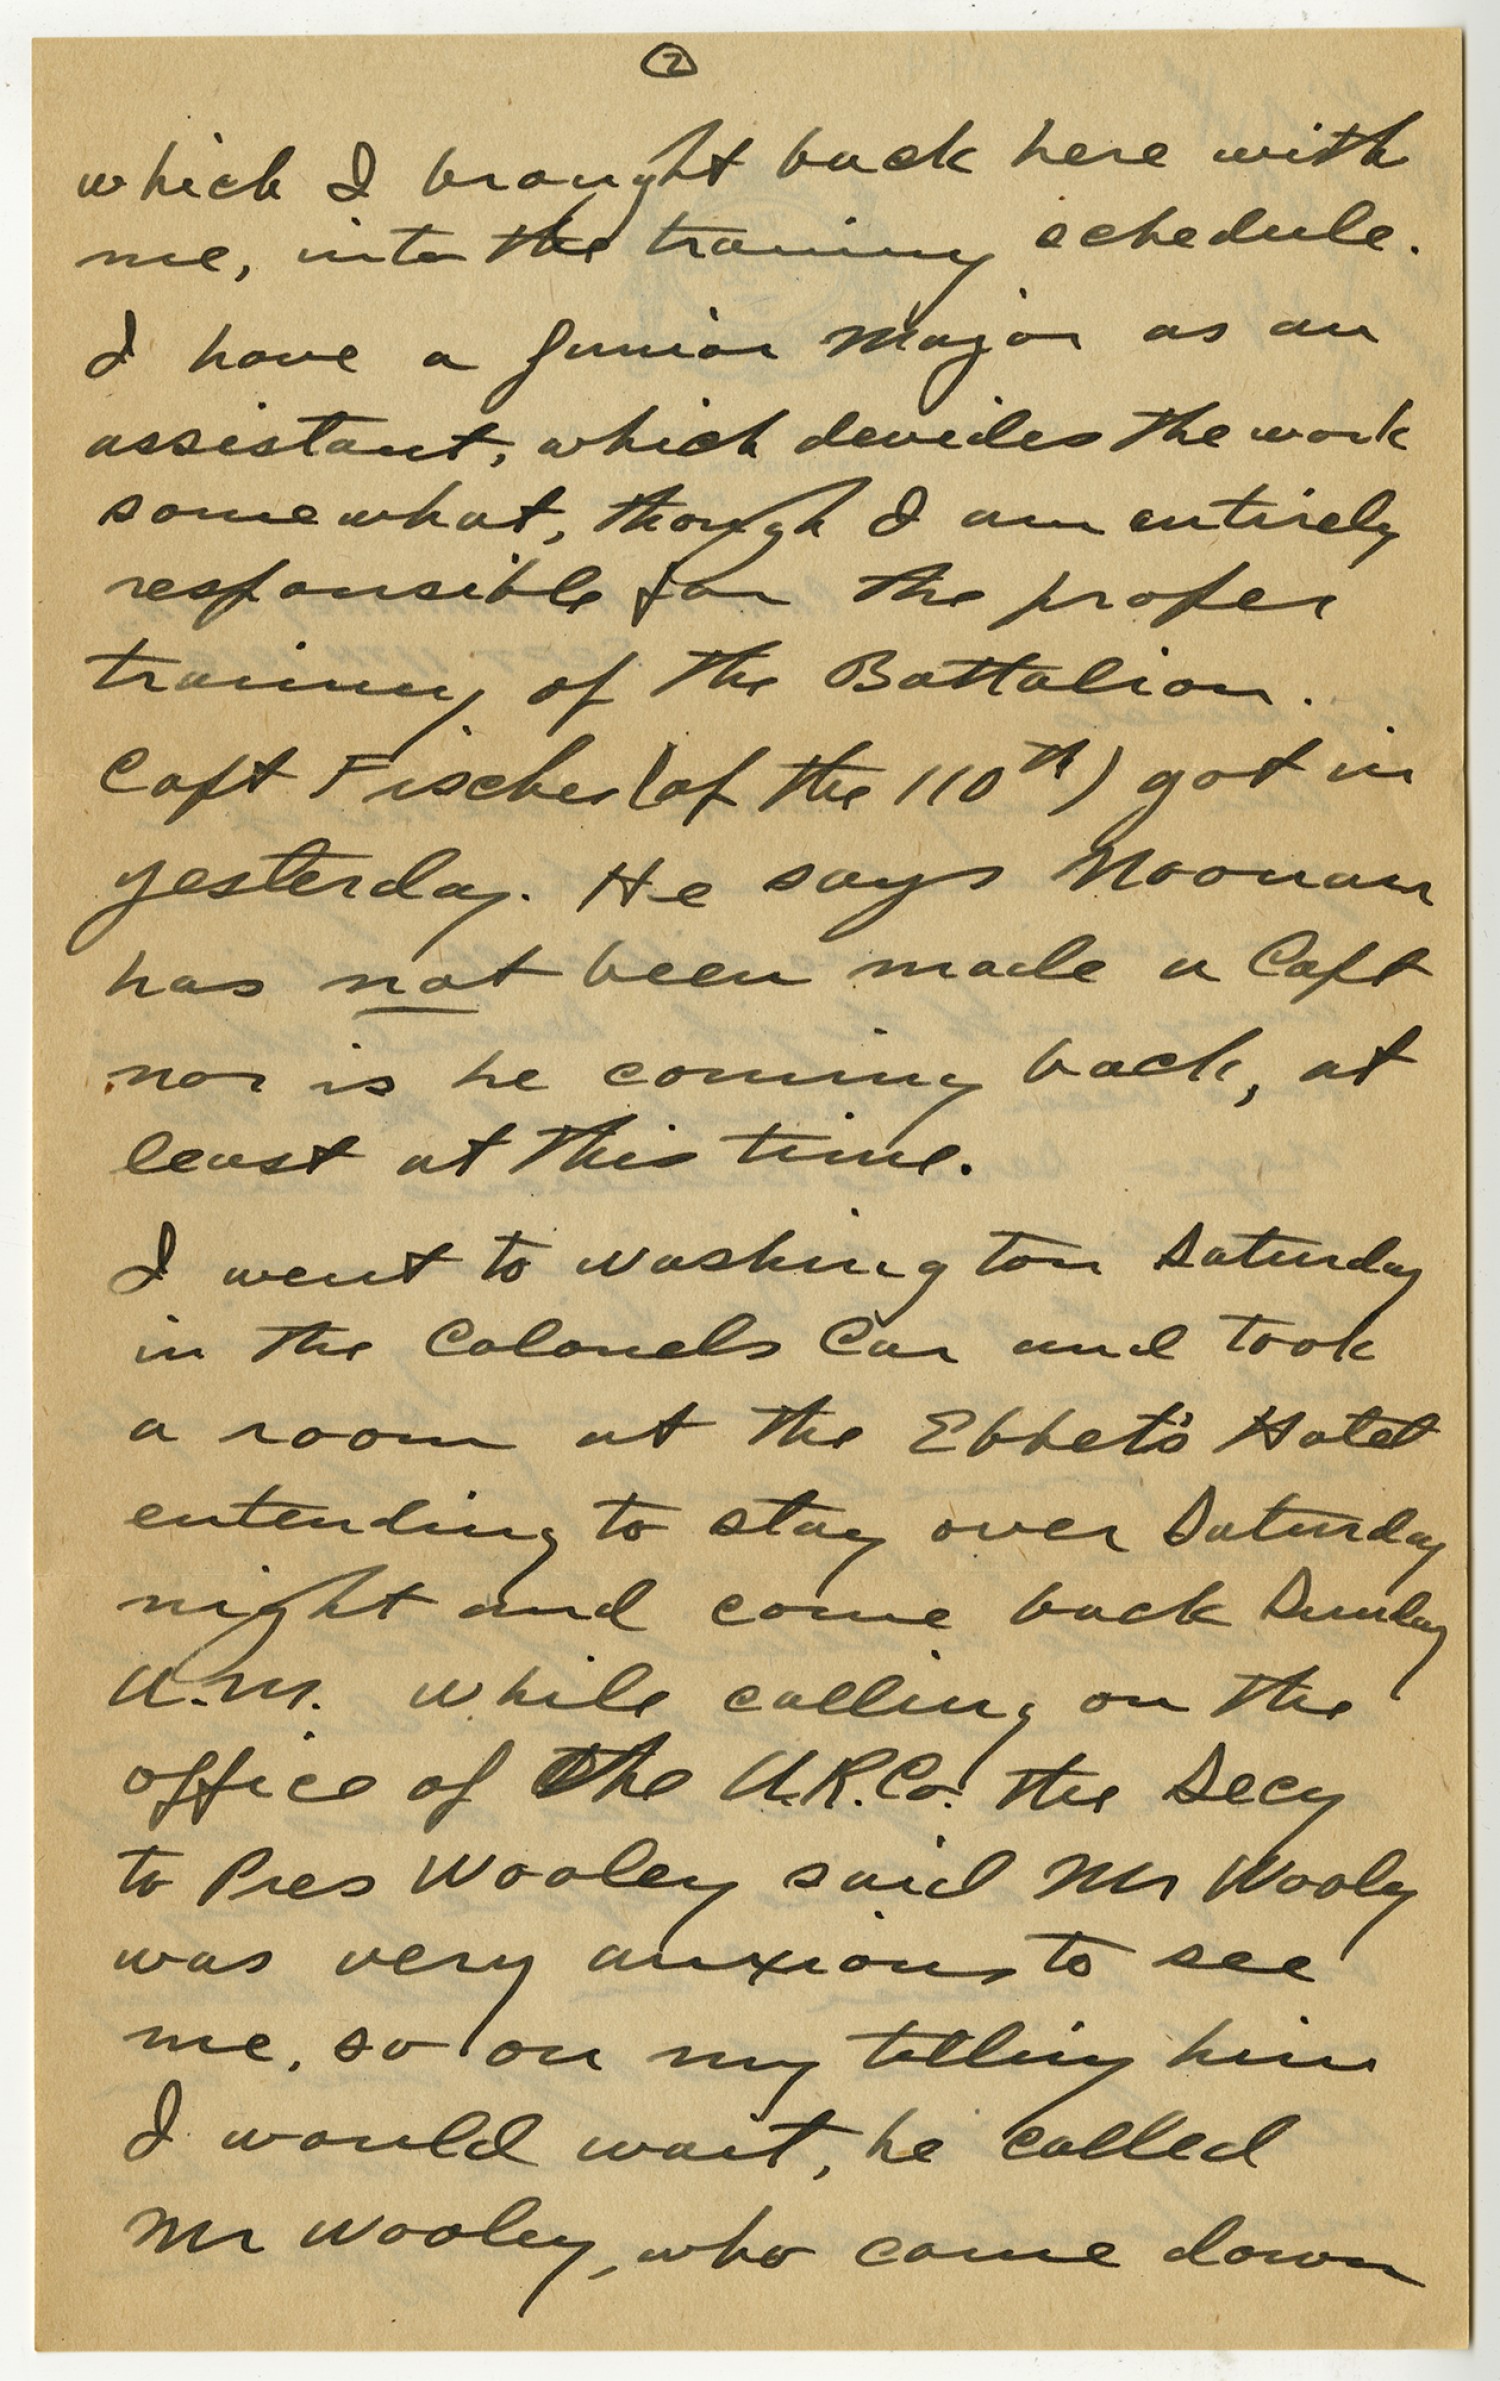 ②
which I brought back here with
me, into the training schedule.
I have a Junior Major as an
assistant, which devides the work
somewhat, though I am entirely
responsible for the proper
training of the Battalion.
Capt Fischer (of the 110th) got in
yesterday. He says Noonan
has not been made a Capt
nor is he coming back, at
least at this time.
I went to Washington Saturday
in the Colonels Car and took
a room at the Ebbet's Hotel
entending to stay over Saturday
night and come back Sunday
A.M. While calling on the
office of the U.R.Co. the Secy
to Pres Wooley said Mr Wooly
was very anxious to see
me, so on my telling him
I would wait, he called
Mr Wooley, who came down